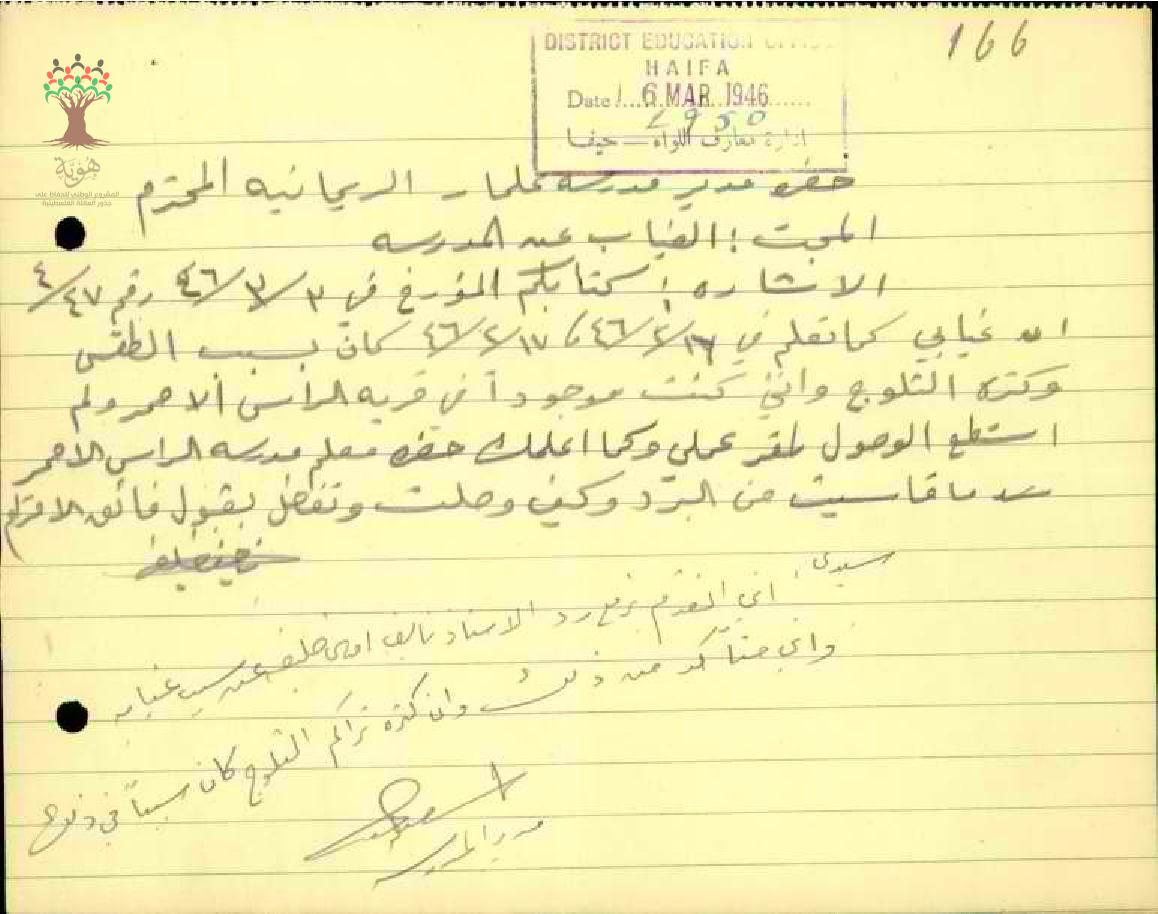 166
DISTRICT EDUCATION OFFICE
HAIFA
Date 16 MAR 1946
2950
ادارة معارف اللواء — حيفا
هُوِيَّة
المشروع الوطني للحفاظ على
جذور العائلة الفلسطينية
حضرة مدير مدرسة الريحانيه المحترم
المبحث : الغياب عن المدرسه
الاشاره : كتابكم المؤرخ في ٣/٣/٤٦ رقم ٤/٤٧
ان غيابي كما تعلم في ١٦/٢/٤٦ و ١٧/٢/٤٦ كان بسبب الطقس
وكثرة الثلوج وانني كنت موجوداً في قرية الراس الاحمر ولم
استطع الوصول لمقر عملي وكما اعلمك حضرة معلم مدرسة الراس الاحمر
ما قاسيت من البرد وكيف وصلت وتفضل بقبول فائق الاحترام
سيدي
اني اتقدم برفع رد الاستاذ نايف خليفه عن سبب غيابه
واني متأكد من ذلك وان كثرة تراكم الثلوج كان سبباً في ذلك
مدير المدرسه